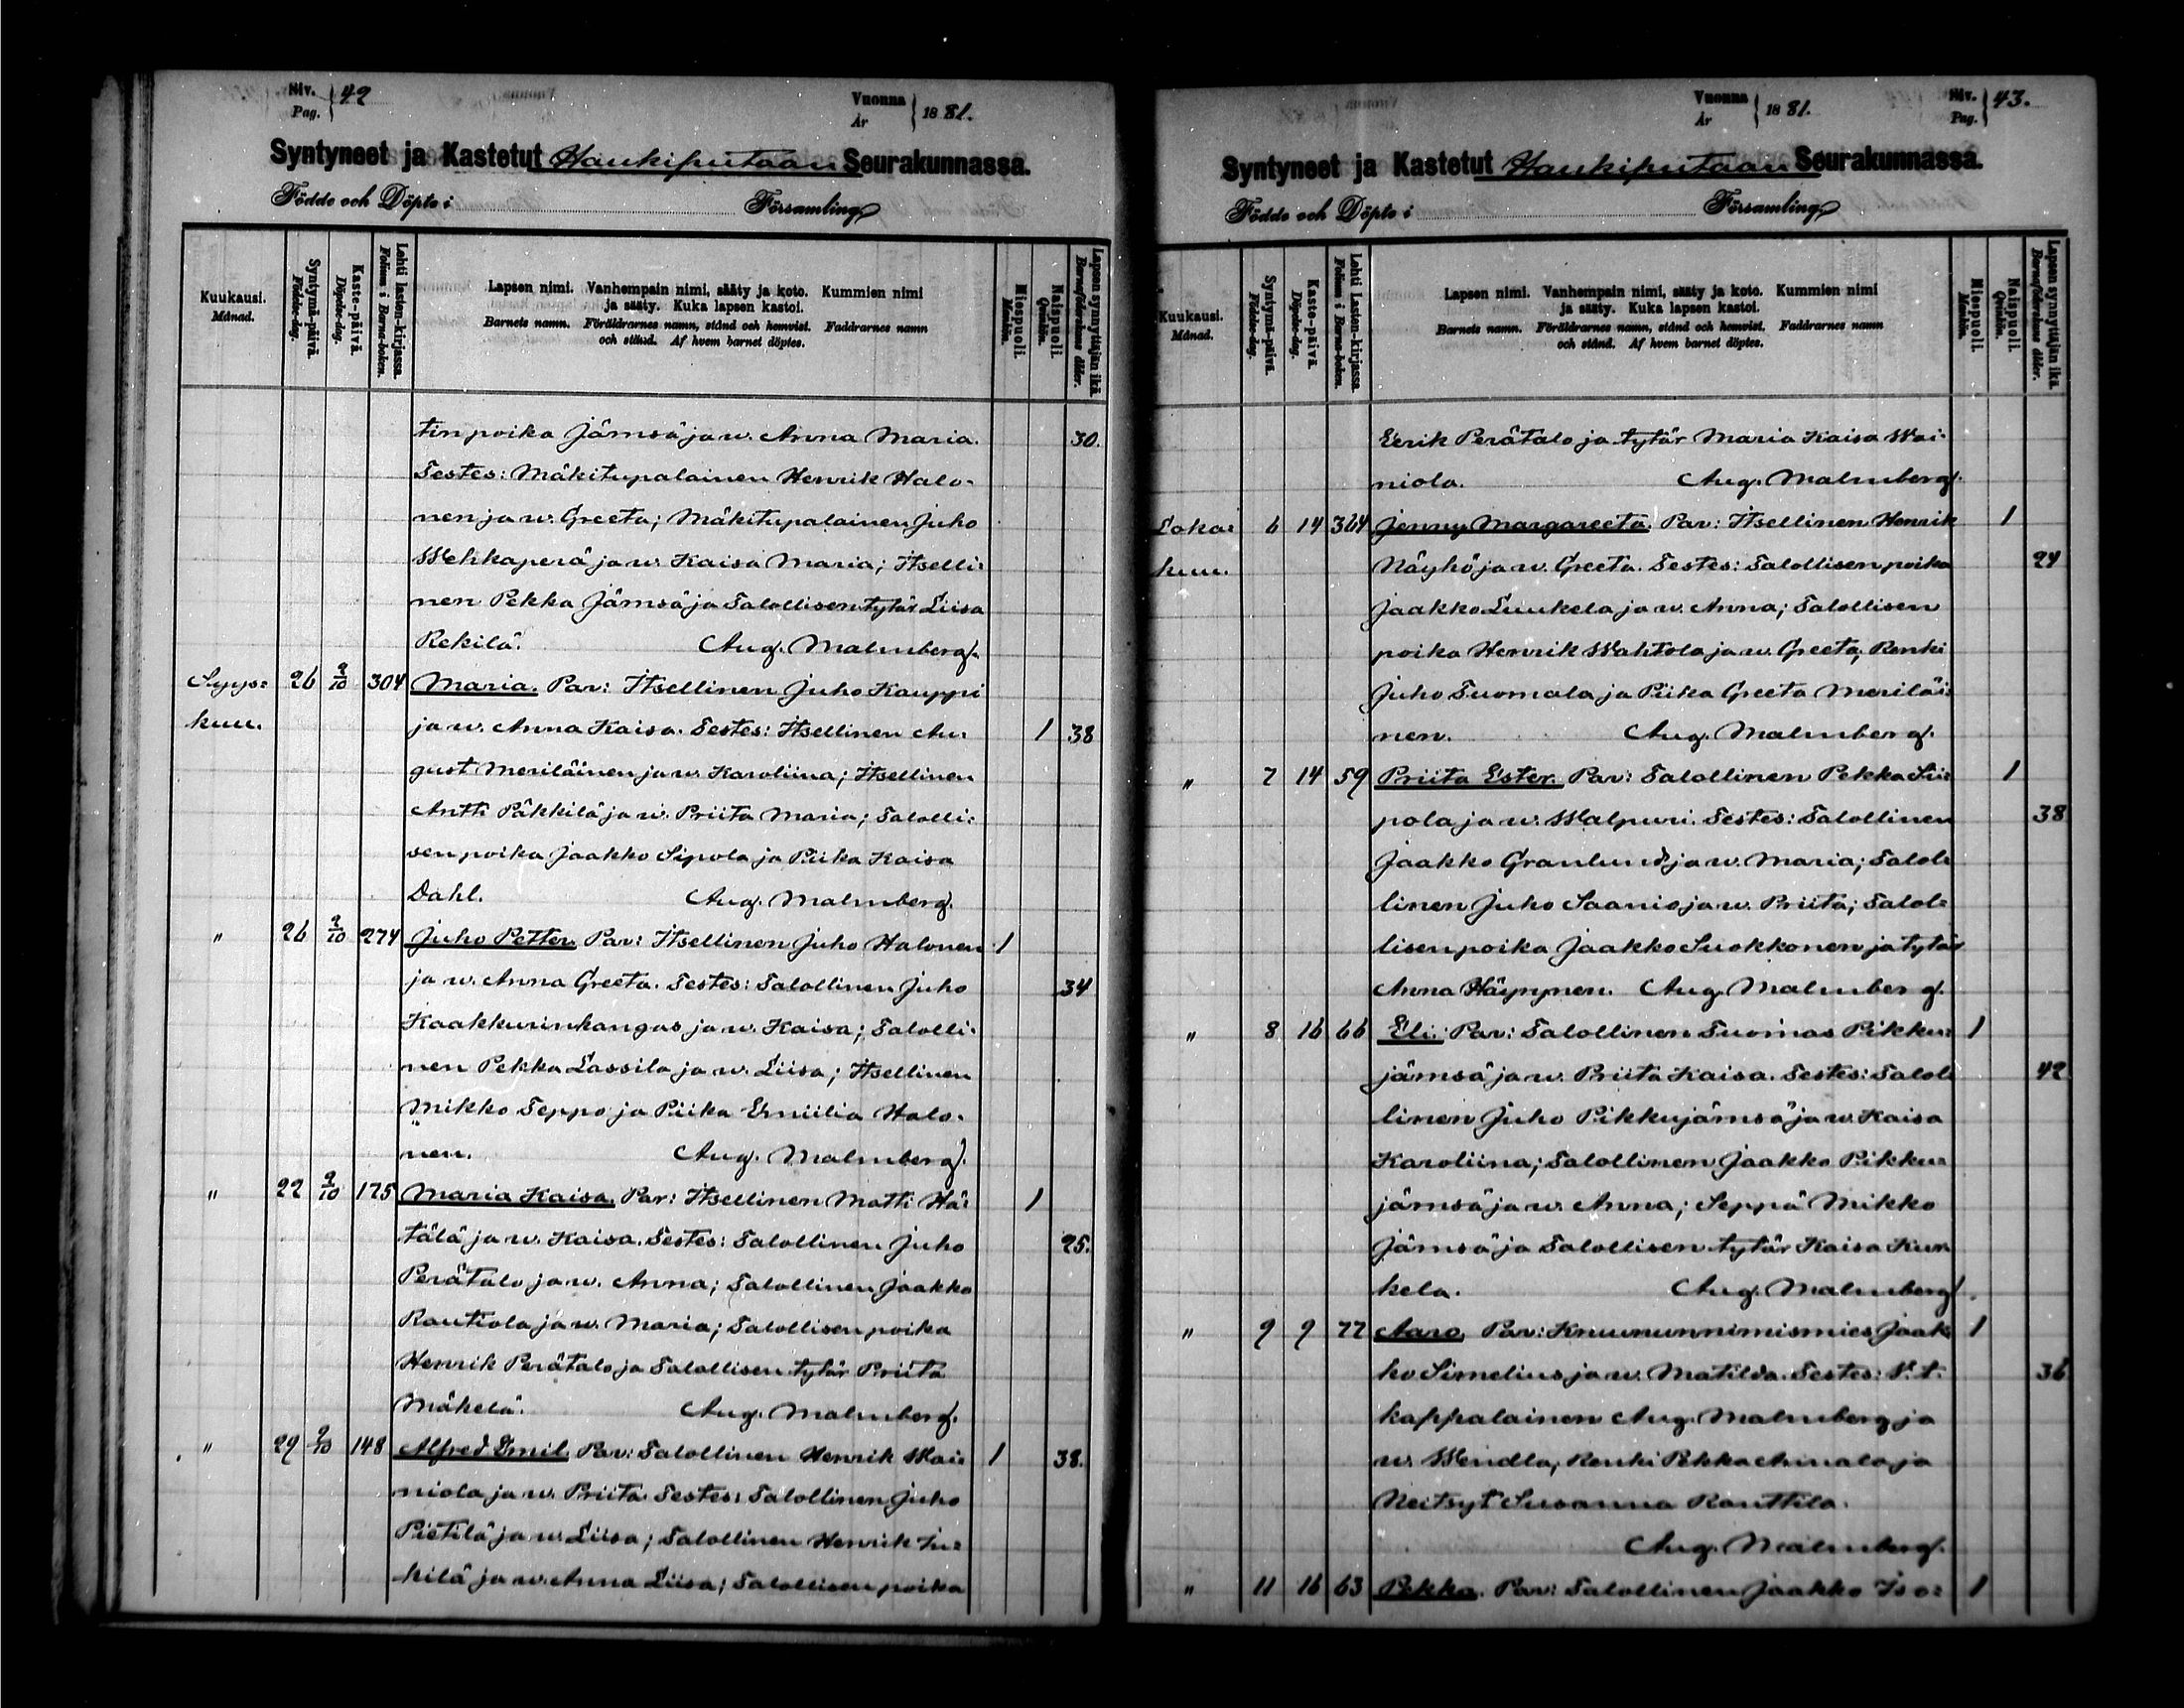 Niv. Pag. } 42
Vuonna År } 1881.
Syntyneet ja Kastetut Haukiputaan Seurakunnassa.
Födde och Döpte i Församling
Kuukausi. Månad.
Syntymä-päivä. Födelse-dag.
Kaste-päivä. Döpelse-dag.
Lehti lasten-kirjassa. Folium i Barna-boken.
Lapsen nimi. Vanhempain nimi, sääty ja koto. Kummien nimi
ja sääty. Kuka lapsen kastoi.
Barnets namn. Föräldrarnes namn, stånd och hemvist. Faddrarnes namn
och stånd. Af hvem barnet döptes.
Miespuoli. Mankön.
Naispuoli. Qvinkön.
Lapsen synnyttäjän ikä. Barnaföderskans ålder.
tinpoika Jämsä ja w. Anna Maria. 30.
Testes: Mäkitupalainen Henrik Halo-
nen ja w. Greeta; Mäkitupalainen Juho
Wehkaperä ja w. Kaisa Maria; Itselli-
nen Pekka Jämsä ja Talollisen tytär Liisa
Rekilä. Aug. Malmberg.
Syys- 26 9/10 304 Maria. Par: Itsellinen Juho Kauppi
kuu. ja w. Anna Kaisa. Testes: Itsellinen Au- 1 38
gust Meriläinen ja w. Karoliina; Itsellinen
Antti Päkkilä ja w. Priita Maria; Talolli-
sen poika Jaakko Sipola ja Piika Kaisa
Dahl. Aug. Malmberg.
" 26 9/10 274 Juho Petter. Par: Itsellinen Juho Halonen 1
ja w. Anna Greeta. Testes: Talollinen Juho 34
Kaakkurinkangas ja w. Kaisa; Talolli-
nen Pekka Lassila ja w. Liisa; Itsellinen
Mikko Seppo ja Piika Emiilia Halo-
nen. Aug. Malmberg.
" 22 9/10 175 Maria Kaisa. Par: Itsellinen Matti Hä- 1
tälä ja w. Kaisa. Testes: Talollinen Juho 25.
Perätalo ja w. Anna; Talollinen Jaakko
Rautiola ja w. Maria; Talollisen poika
Henrik Perätalo ja Talollisen tytär Priita
Mäkelä. Aug. Malmberg.
" 29 9/10 148 Alfred Emil. Par: Talollinen Henrik Wai- 1 38.
niola ja w. Priita. Testes: Talollinen Juho
Pietilä ja w. Liisa; Talollinen Henrik Ju-
kilä ja w. Anna Liisa; Talollisen poika
Vuonna År } 1881.
Niv. Pag. } 43.
Syntyneet ja Kastetut Haukiputaan Seurakunnassa.
Födde och Döpte i Församling
Kuukausi. Månad.
Syntymä-päivä. Födelse-dag.
Kaste-päivä. Döpelse-dag.
Lehti Lasten-kirjassa. Folium i Barna-boken.
Lapsen nimi. Vanhempain nimi, sääty ja koto. Kummien nimi
ja sääty. Kuka lapsen kastoi.
Barnets namn. Föräldrarnes namn, stånd och hemvist. Faddrarnes namn
och stånd. Af hvem barnet döptes.
Miespuoli. Mankön.
Naispuoli. Qvinkön.
Lapsen synnyttäjän ikä. Barnaföderskans ålder.
Eerik Perätalo ja tytär Maria Kaisa Wai-
niola. Aug. Malmberg.
Loka- 6 14 364 Jenny Margareeta. Par: Itsellinen Henrik 1
kuu. Näyhö ja w. Greeta. Testes: Talollisen poika 24
Jaakko Luukela ja w. Anna; Talollisen
poika Henrik Wahtola ja w. Greeta; Renki
Juho Tuomala ja Piika Greeta Meriläi-
nen. Aug. Malmberg.
" 7 14 59 Priita Ester. Par: Talollinen Pekka Sii- 1
pola ja w. Walpuri. Testes: Talollinen 38
Jaakko Granlund ja w. Maria; Talol-
linen Juho Saanio ja w. Priita; Talol-
lisen poika Jaakko Suokkonen ja tytär
Anna Häyrynen. Aug. Malmberg.
" 8 16 66 Eli. Par: Talollinen Tuomas Pikku- 1
jämsä ja w. Priita Kaisa. Testes: Talol- 42
linen Juho Pikkujämsä ja w. Kaisa
Karoliina; Talollinen Jaakko Pikku-
jämsä ja w. Anna; Seppä Mikko
Jämsä ja Talollisen tytär Kaisa Kur-
kela. Aug. Malmberg.
" 9 9 77 Aaro. Par: Kruununnimismies Jaak- 1
ko Simelius ja w. Matilda. Testes: V. t. 36
kappalainen Aug. Malmberg ja
w. Wendla; Renki Pekka Ainala ja
Neitsyt Susanna Rauttila.
Aug. Malmberg.
" 11 16 63 Pekka. Par: Talollinen Jaakko Iso- 1